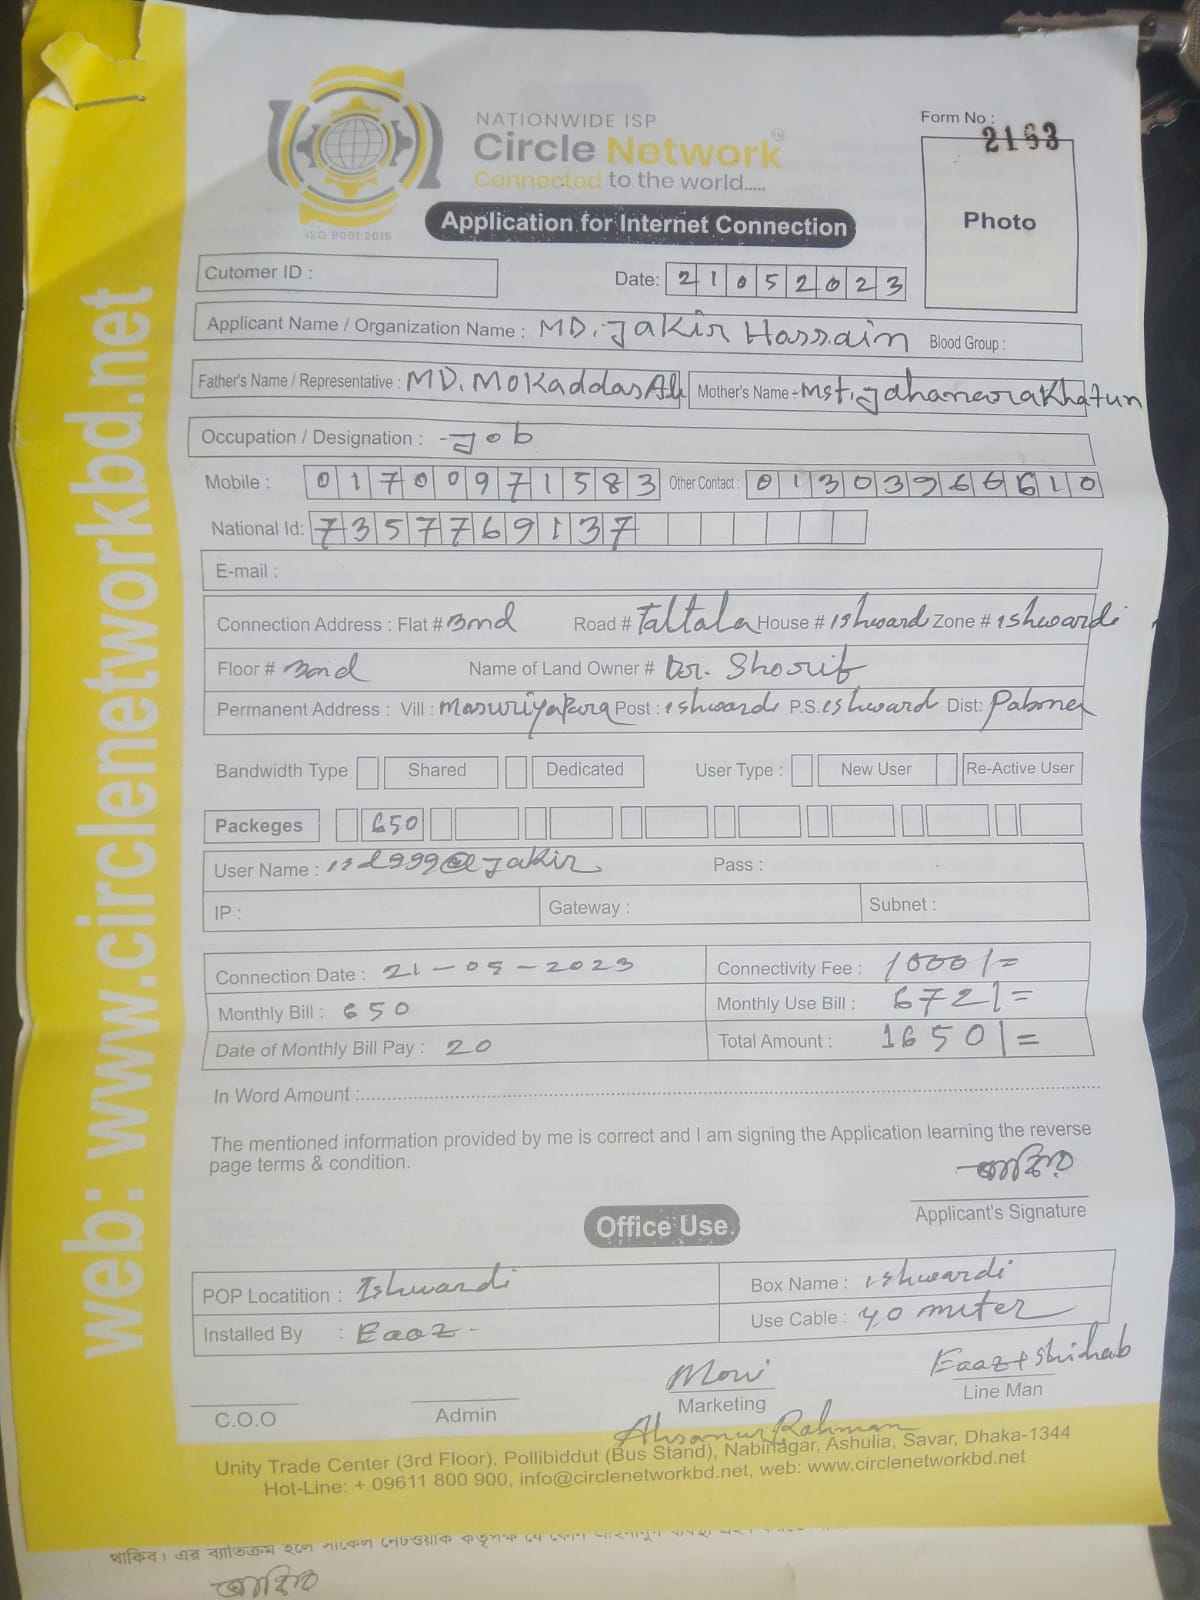 NATIONWIDE ISP
Circle Network
Connected to the world.....
ISO 9001:2015
Form No : 2163
Photo
Application for Internet Connection
Cutomer ID :
Date: 21052023
Applicant Name / Organization Name : MD. Jakir Hossain Blood Group :
Father's Name / Representative : MD. Mokaddas Ali Mother's Name : Mst. Jahaneara Khatun
Occupation / Designation : Job
Mobile : 01700971583 Other Contact : 01303966610
National Id: 7357769137
E-mail :
Connection Address : Flat # Road # Taltala House # ishward Zone # ishwardi
Floor # Name of Land Owner # Dr. Shorif
Permanent Address : Vill : Masuriyapara Post : ishwardi P.S. ishward Dist: Pabna
Bandwidth Type Shared Dedicated User Type : New User Re-Active User
Packeges 650
User Name : isd999@jakir Pass :
IP : Gateway : Subnet :
Connection Date : 21-05-2023 Connectivity Fee : 1000/=
Monthly Bill : 650 Monthly Use Bill : 672/=
Date of Monthly Bill Pay : 20 Total Amount : 1650/=
In Word Amount :
The mentioned information provided by me is correct and I am signing the Application learning the reverse
page terms & condition.
জাকির
Applicant's Signature
Office Use
POP Locatition : Ishwardi Box Name : ishwardi
Installed By : Eaaz - Use Cable : 40 miter
Moni Eaaz+Shihab
C.O.O Admin Marketing Line Man
Ahsanur Rahman
Unity Trade Center (3rd Floor), Pollibiddut (Bus Stand), Nabinagar, Ashulia, Savar, Dhaka-1344
Hot-Line: + 09611 800 900, info@circlenetworkbd.net, web: www.circlenetworkbd.net
web: www.circlenetworkbd.net
থাকিব। এর ব্যতিক্রম হলে সার্কেল নেটওয়ার্ক কর্তৃপক্ষ যে কোন
জাকির